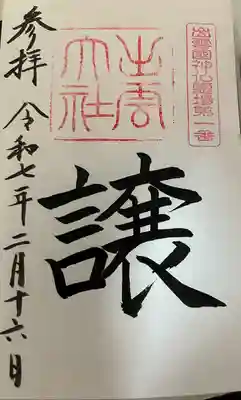 出雲國神仏霊場第一番
出雲大社
譲
参拝 令和七年二月十六日